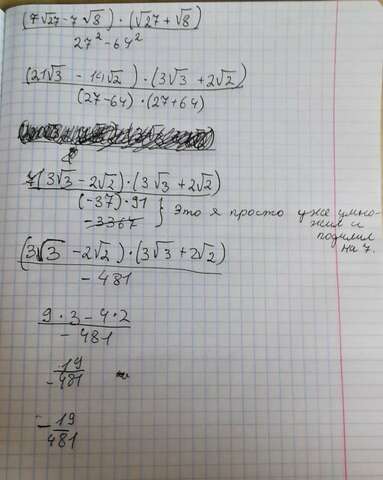 (7√27 - 7√8) · (√27 + √8)
27² - 64²
(21√3 - 14√2) · (3√3 + 2√2)
(27-64) · (27+64)
7(3√3 - 2√2) · (3√3 + 2√2)
(-37) · 91
-3367
} Это я просто уже умно-
жил и
поделил
на 7.
(3√3 - 2√2) · (3√3 + 2√2)
-481
9 · 3 - 4 · 2
-481
19
-481
- 19
481